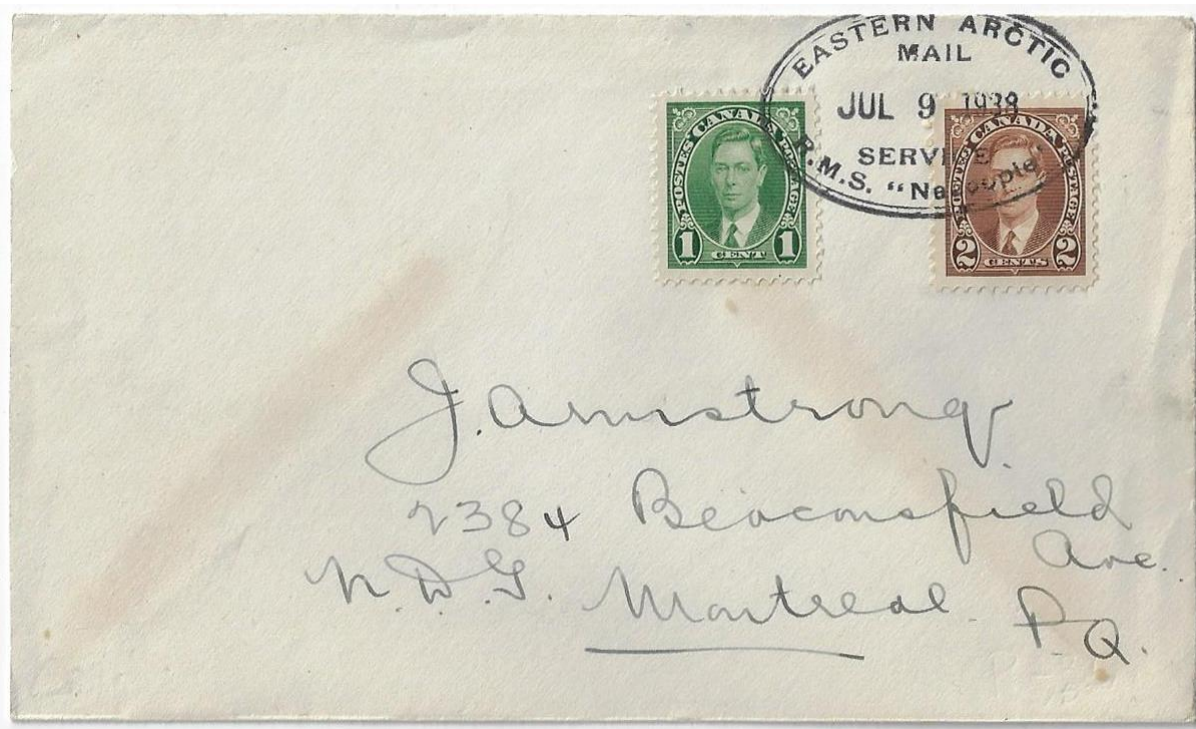 EASTERN ARCTIC
MAIL
JUL 9 1938
SERVICE
R.M.S. "Nascopie"
POSTES CANADA POSTAGE
1 CENT 1
POSTES CANADA POSTAGE
2 CENTS 2
J. Armstrong
2384 Beaconsfield
Ave.
N.D.G. Montreal P.Q.